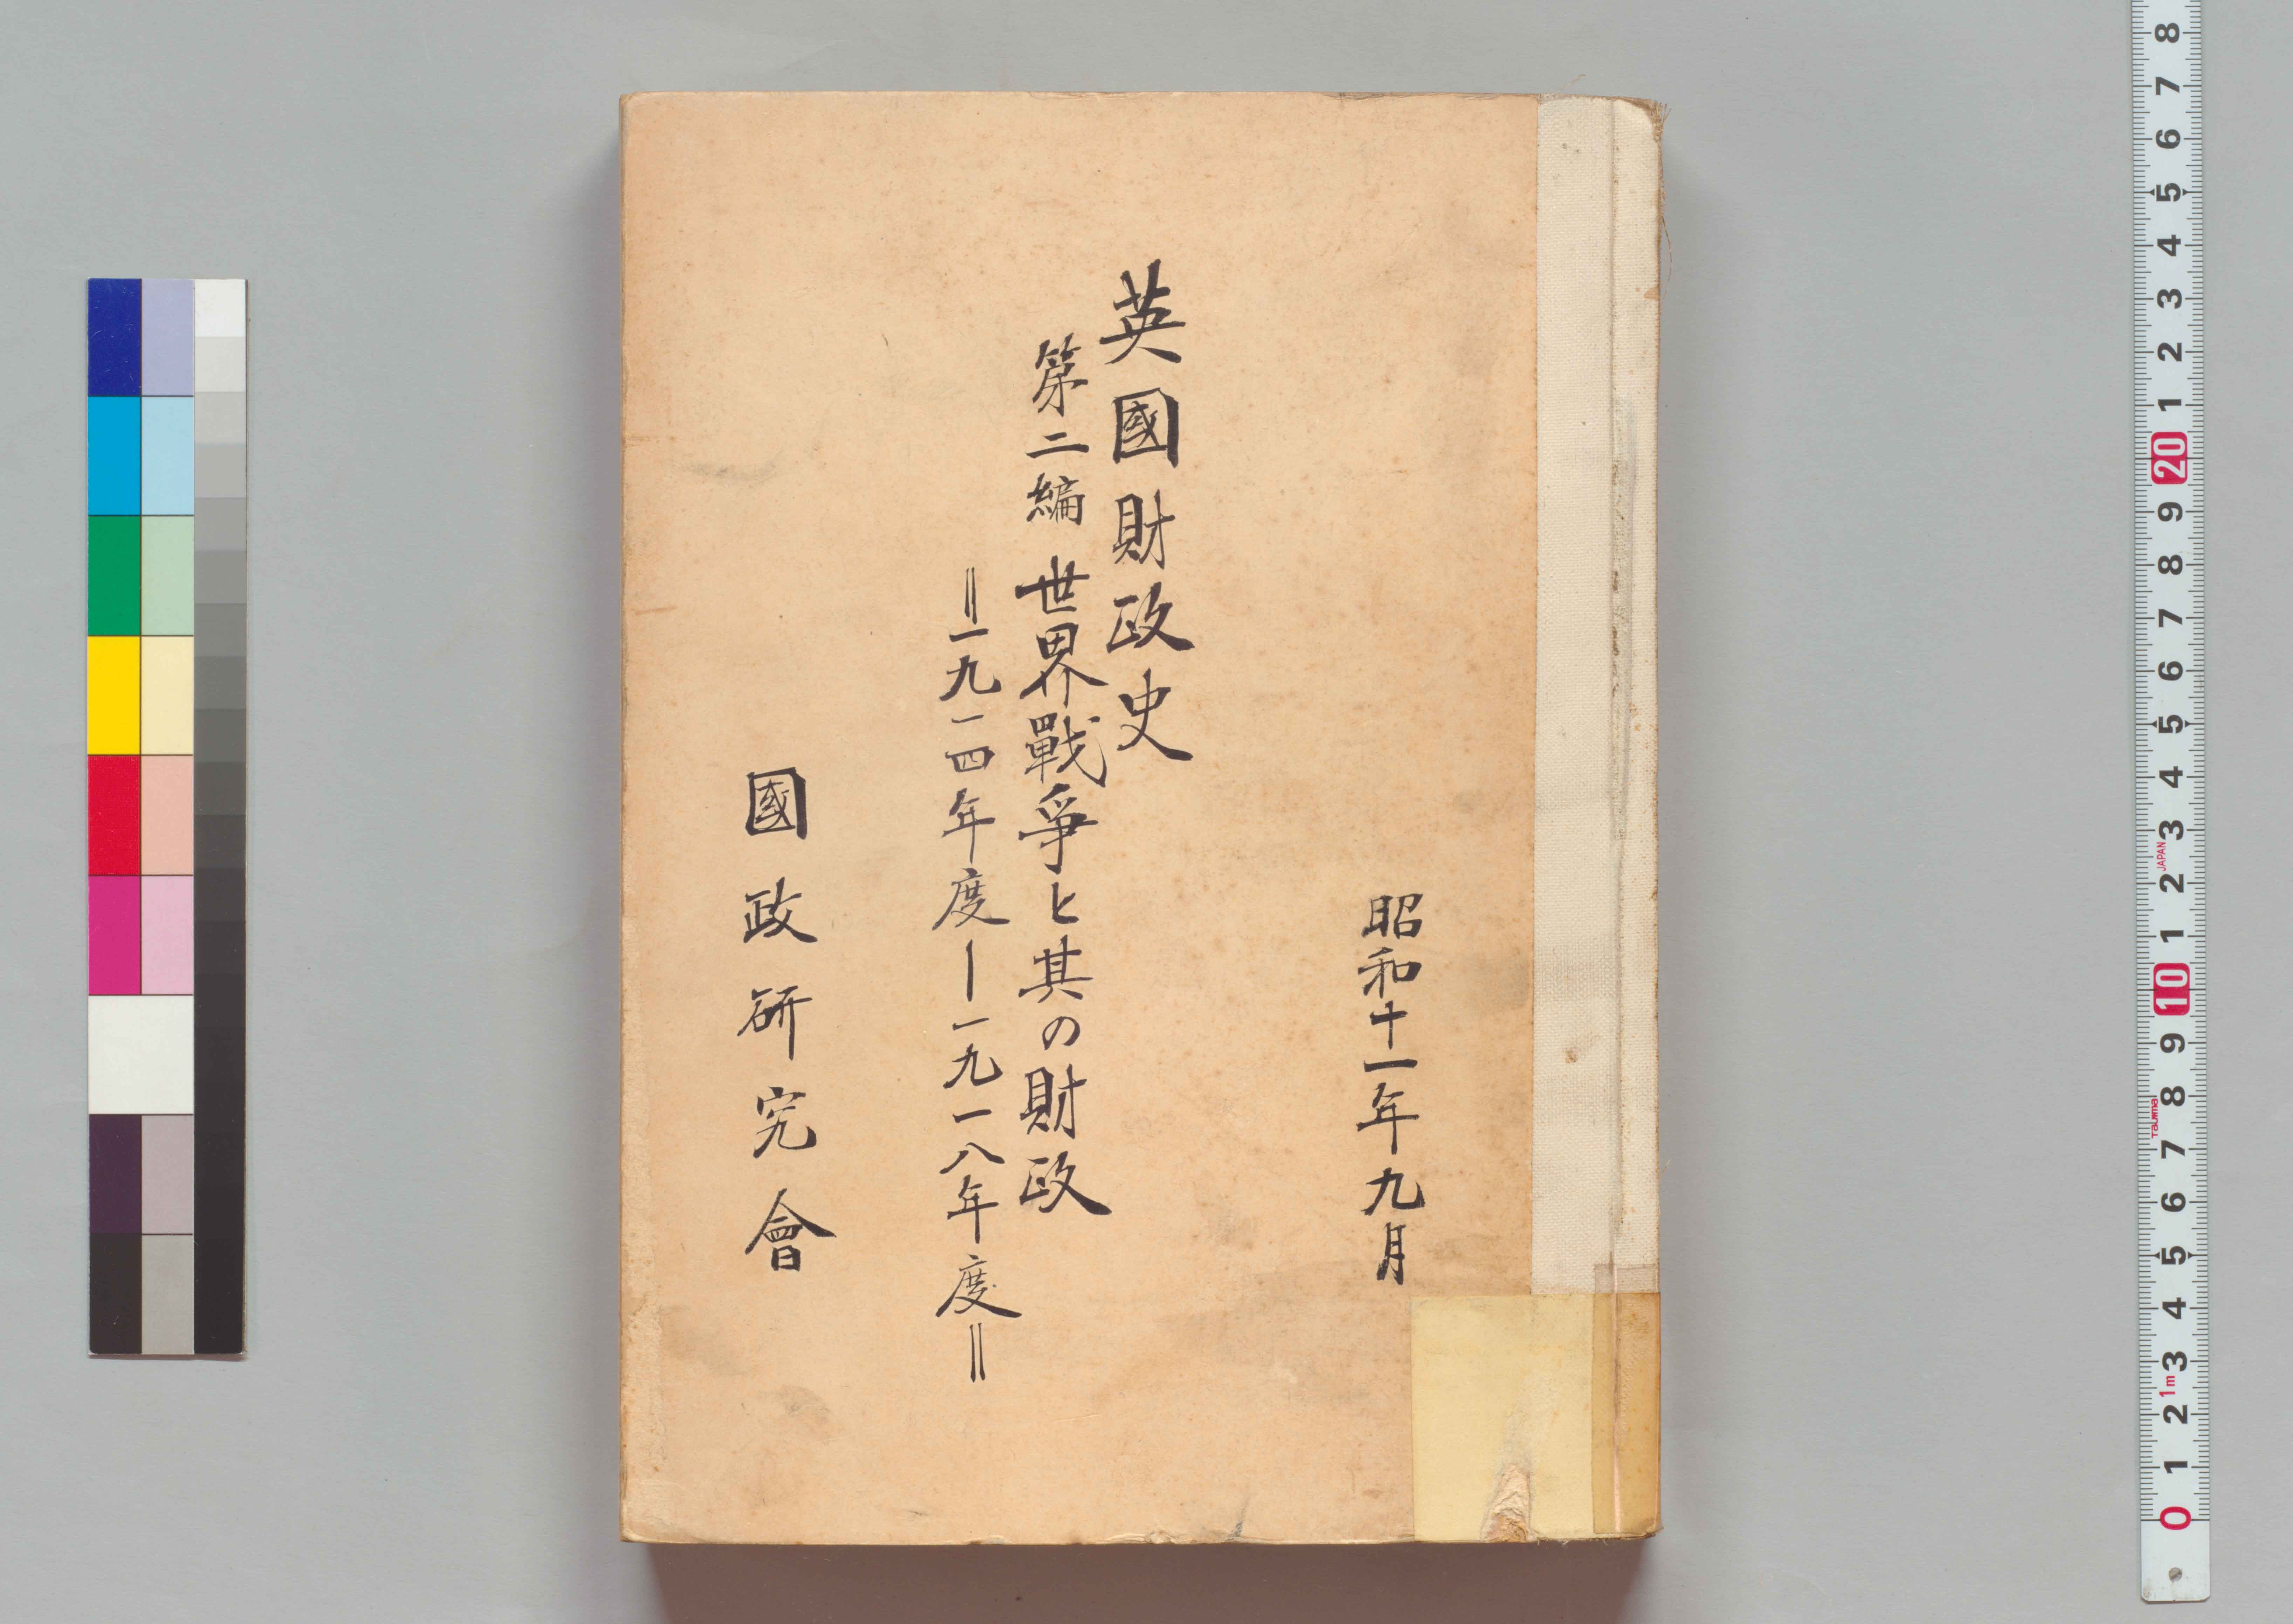 昭和十一年九月
英國財政史
第二編 世界戰爭と其の財政
＝一九一四年度ー一九一八年度＝
國政研究會
8
7
6
5
4
3
2
1
20
9
8
7
6
5
4
3
JAPAN
2
1
10
9
8
Tajima
7
6
5
4
3
1m
2
1
0